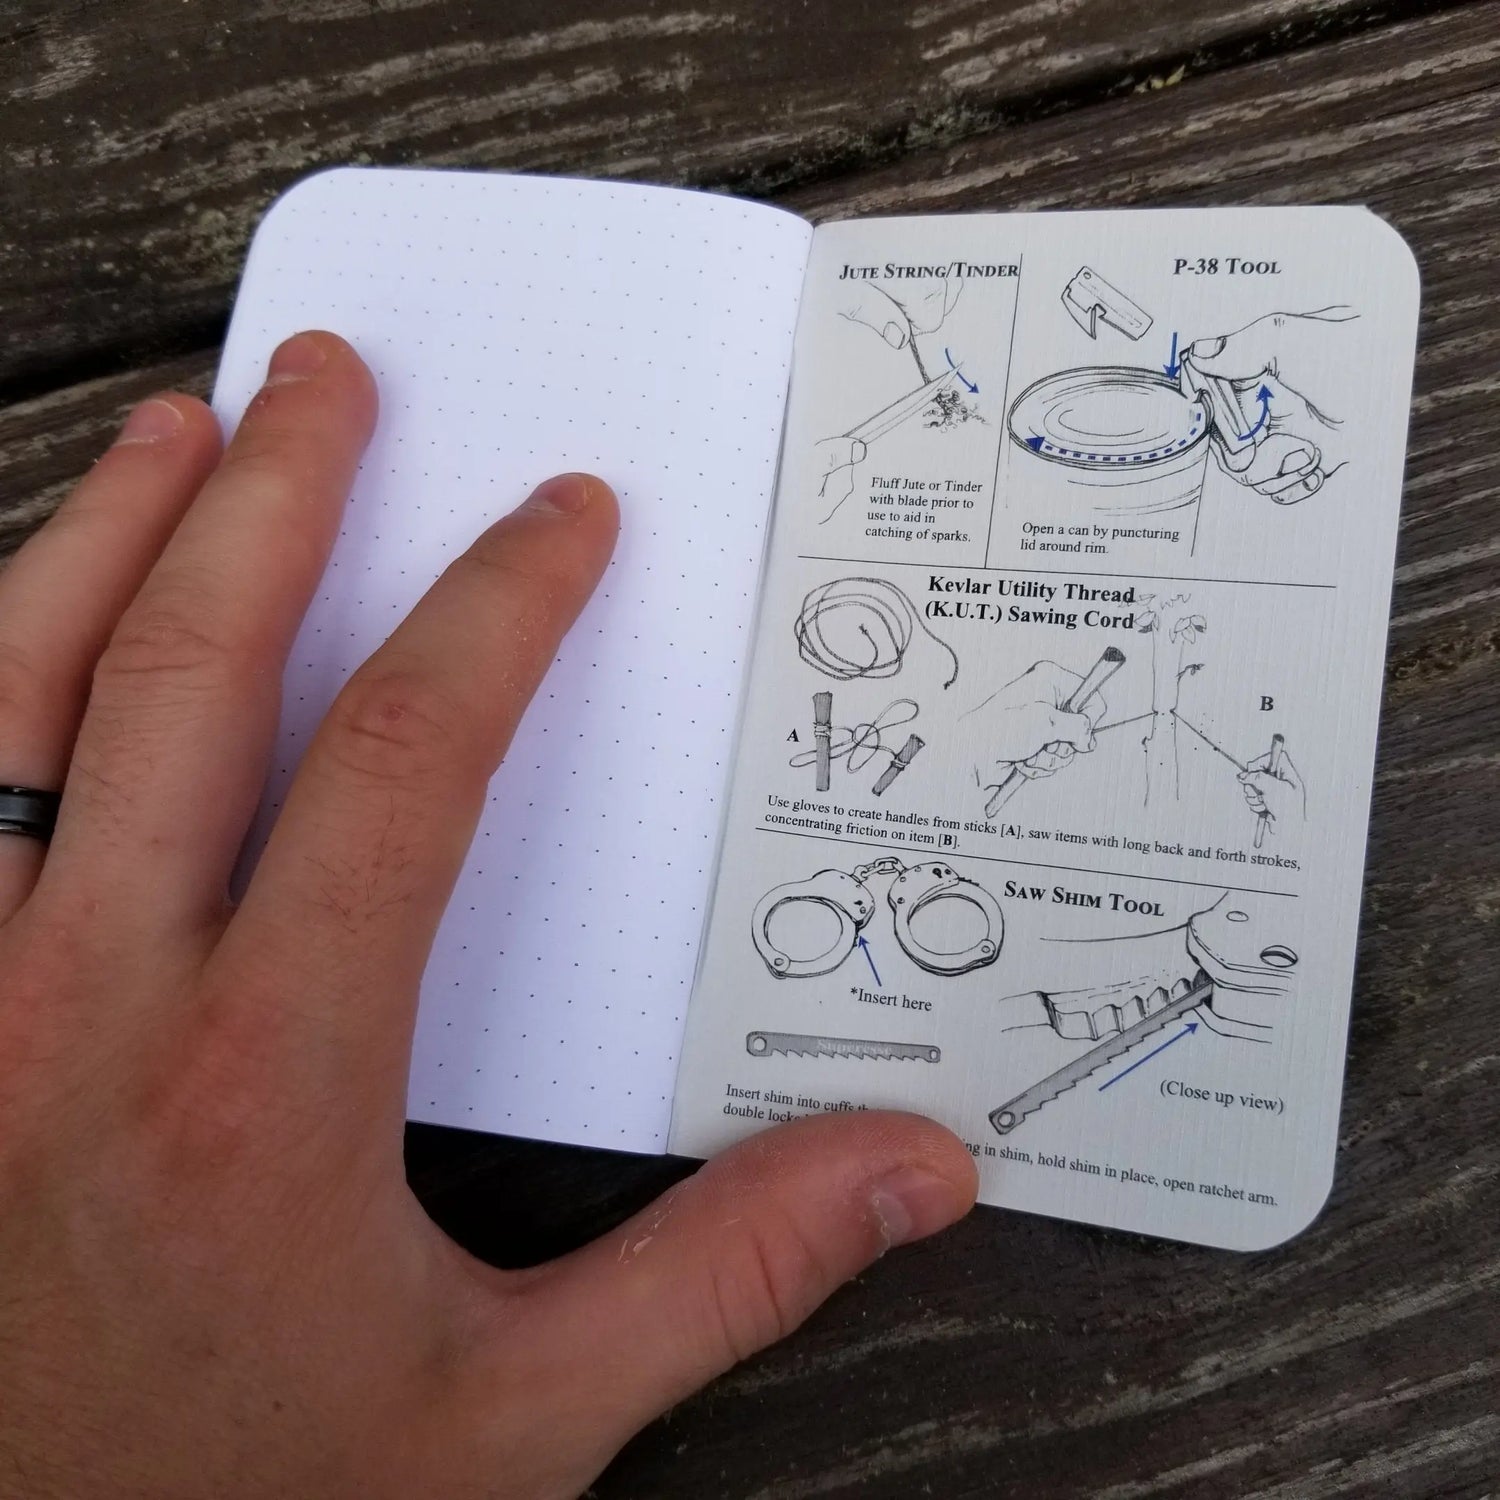 JUTE STRING/TINDER
Fluff Jute or Tinder
with blade prior to
use to aid in
catching of sparks.
P-38 TOOL
Open a can by puncturing
lid around rim.
Kevlar Utility Thread
(K.U.T.) Sawing Cord
A
B
Use gloves to create handles from sticks [A], saw items with long back and forth strokes,
concentrating friction on item [B].
SAW SHIM TOOL
*Insert here
(Close up view)
Insert shim into cuffs
double
in shim, hold shim in place, open ratchet arm.